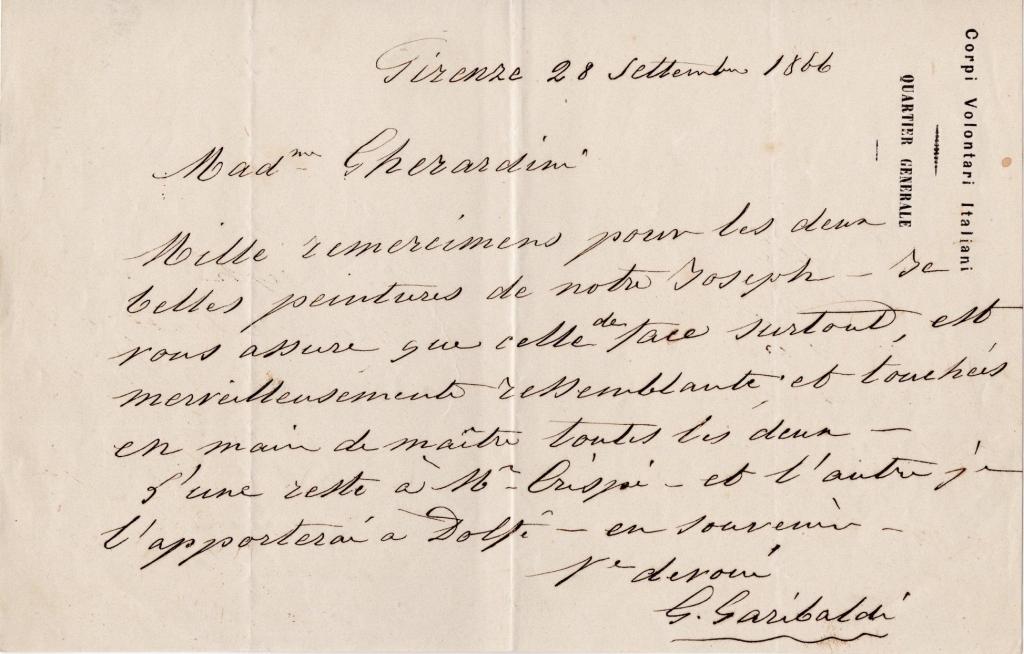 Corpi Volontari Italiani
QUARTIER GENERALE
Firenze 28 Settembre 1866
Mad.me Gherardini
Mille remercimens pour les deux
belles peintures de notre Joseph – Je
vous assure que celle de face surtout, est
merveilleusemente ressemblante et touchées
en main de maître toutes les deux –
L'une reste à Mr Crispi – et l'autre je
l'apporterai a Dolfi – en souvenir –
Ve devoué
G. Garibaldi